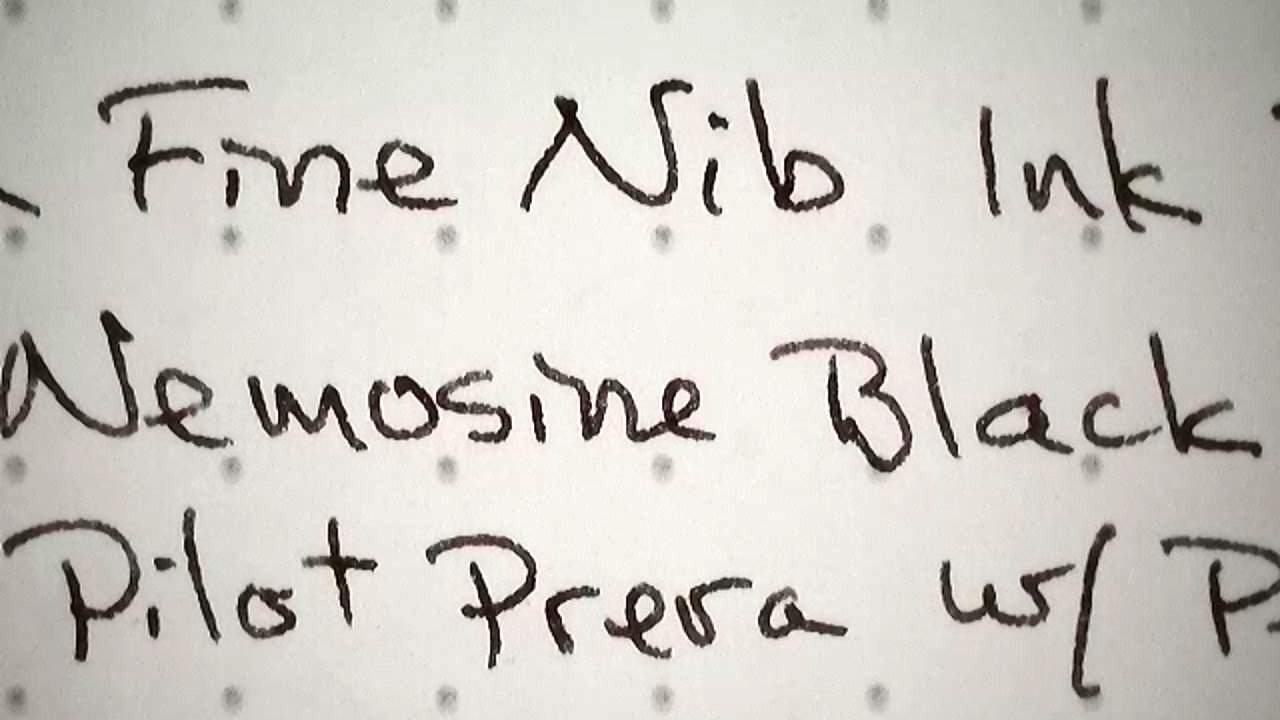 Fine Nib Ink
Nemosine Black
Pilot Prera w/ P